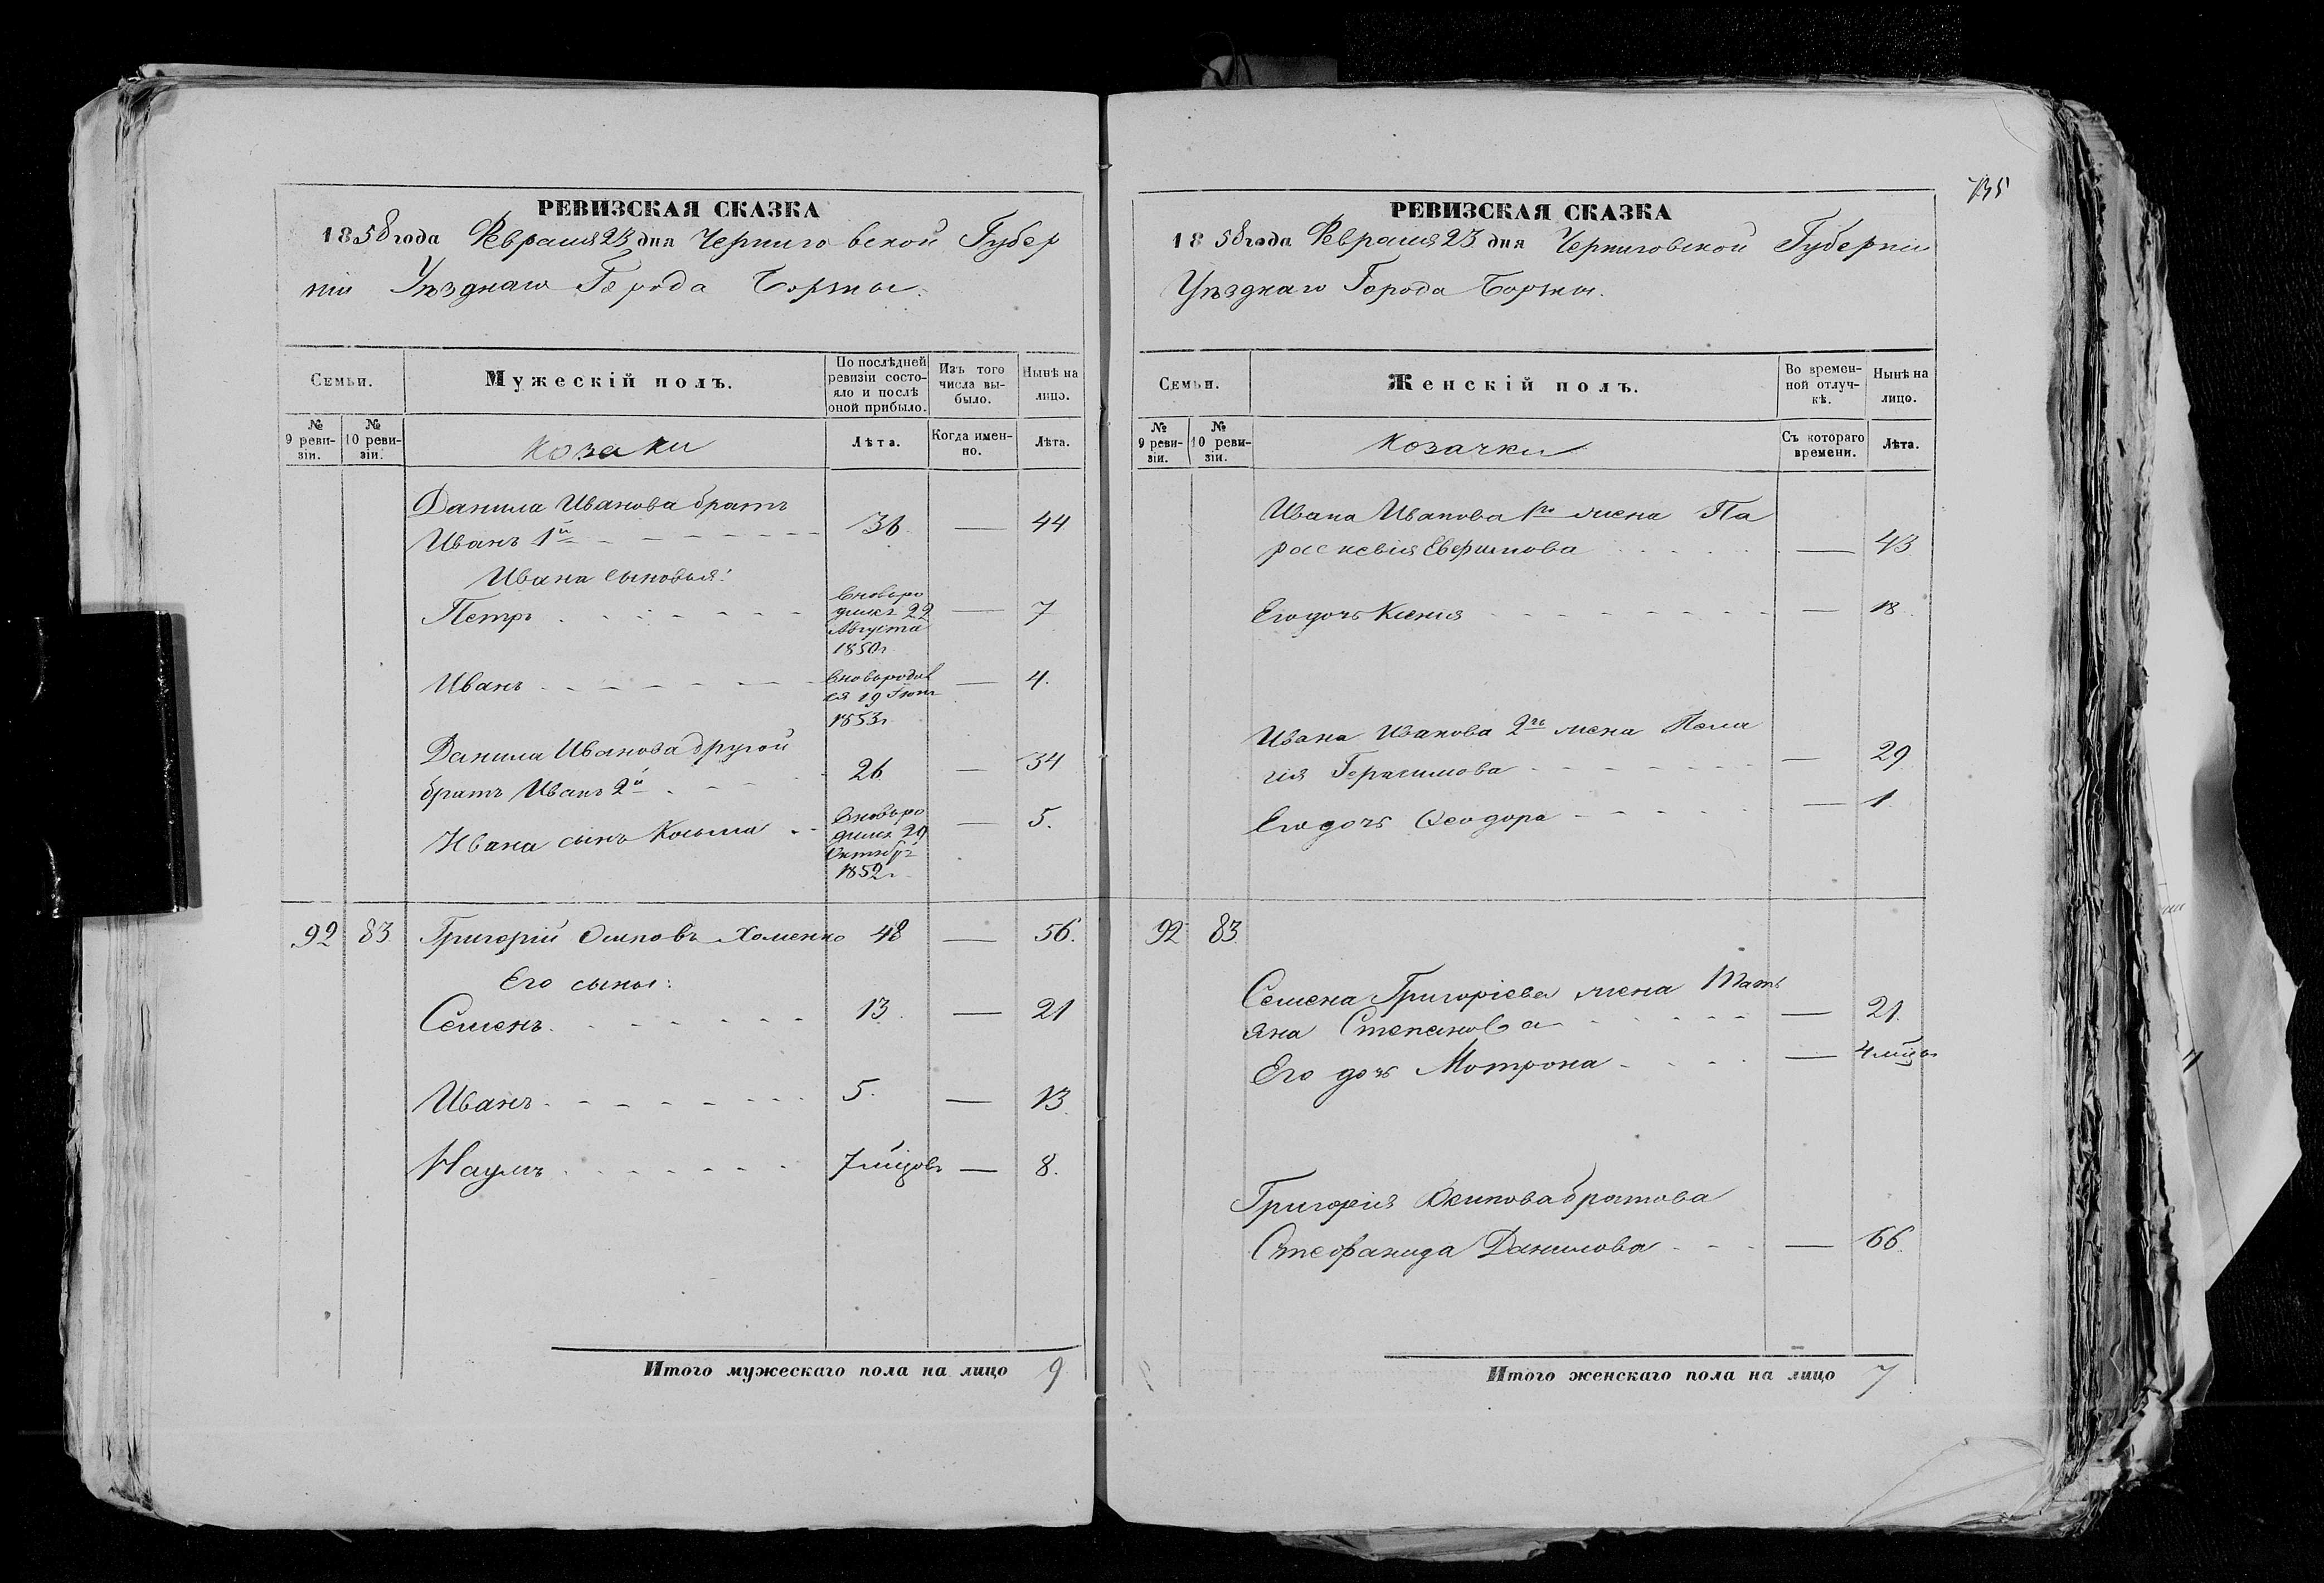 РЕВИЗСКАЯ СКАЗКА
1858 года Февраля 23 дня Черниговской Губер
ніи Уѣзднаго Города Борзны.
Семьи.
Мужескій полъ.
По послѣдней ревизіи состояло и послѣ оной прибыло.
Изъ того числа выбыло.
Нынѣ на лицо.
№ 9 ревизіи.
№ 10 ревизіи.
Козаки
Лѣта.
Когда именно.
Лѣта.
Данила Иванова братъ
Иванъ 1й 36 — 44
Ивана сыновья:
Петръ — 7
вновьро
дился 22
Августа
1850г.
Иванъ — 4.
вновьродив
ся 19 Іюня
1853г.
Данила Иванова другой
братъ Иванъ 2й 26 — 34
Ивана сынъ Косьма — 5.
вновьро
дился 29
Октября
1852г.
92 83 Григорій Осиповъ Хоменко 48 — 56.
Его сыны:
Семенъ 13. — 21
Иванъ 5. — 13.
Наумъ 7 мѣсцовъ — 8.
Итого мужескаго пола на лицо 9
735
РЕВИЗСКАЯ СКАЗКА
1858 года Февраля 23 дня Черниговской Губерніи
Уѣзднаго Города Борзны.
Семьи.
Женскій полъ.
Во временной отлучкѣ.
Нынѣ на лицо.
№ 9 ревизіи.
№ 10 ревизіи.
Козачки
Съ котораго времени.
Лѣта.
Ивана Иванова 1го жена Па
раскевія — 43
Его дочь Ксенія — 18.
Ивана Иванова 2го жена Пела
гія Герасимова — 29
Его дочь Ѳеодора — 1.
92 83.
Семена Григоріева жена Тать
яна Степанова — 21.
Его дочь Мотрона — 4 мѣсцы
Григорія Осипова братова
Стефанида Данилова — 66.
Итого женскаго пола на лицо 7